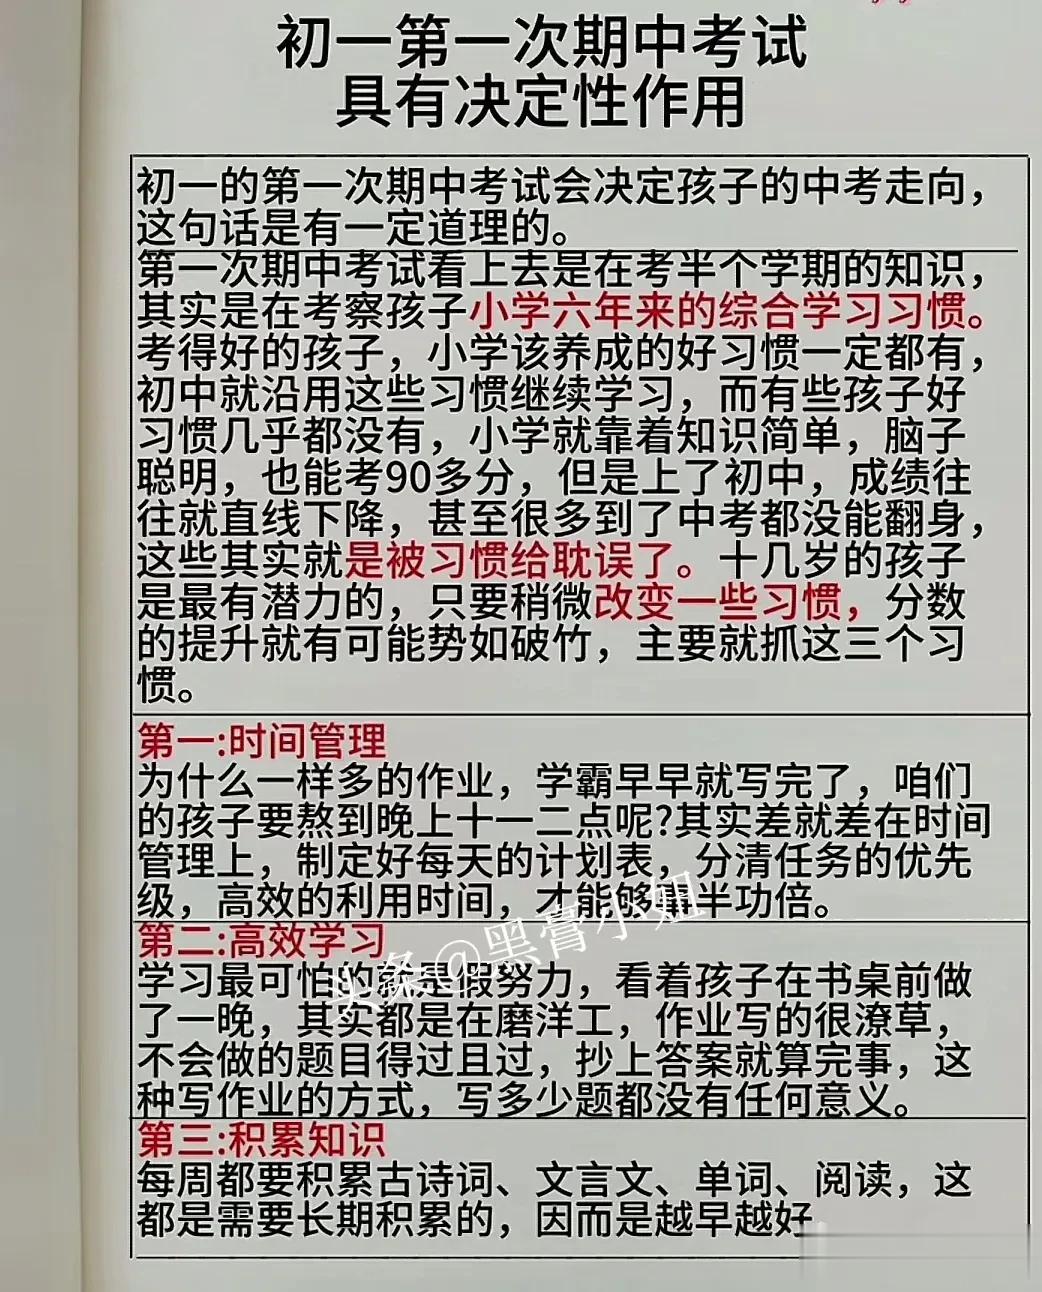 初一第一次期中考试
具有决定性作用
初一的第一次期中考试会决定孩子的中考走向，
这句话是有一定道理的。
第一次期中考试看上去是在考半个学期的知识，
其实是在考察孩子小学六年来的综合学习习惯。
考得好的孩子，小学该养成的好习惯一定都有，
初中就沿用这些习惯继续学习，而有些孩子好
习惯几乎都没有，小学就靠着知识简单，脑子
聪明，也能考90多分，但是上了初中，成绩往
往就直线下降，甚至很多到了中考都没能翻身，
这些其实就是被习惯给耽误了。十几岁的孩子
是最有潜力的，只要稍微改变一些习惯，分数
的提升就有可能势如破竹，主要就抓这三个习
惯。
第一:时间管理
为什么一样多的作业，学霸早早就写完了，咱们
的孩子要熬到晚上十一二点呢?其实差就差在时间
管理上，制定好每天的计划表，分清任务的优先
级，高效的利用时间，才能够事半功倍。
第二:高效学习
学习最可怕的就是假努力，看着孩子在书桌前做
了一晚，其实都是在磨洋工，作业写的很潦草，
不会做的题目得过且过，抄上答案就算完事，这
种写作业的方式，写多少题都没有任何意义。
第三:积累知识
每周都要积累古诗词、文言文、单词、阅读，这
都是需要长期积累的，因而是越早越好
头条@黑膏小妞